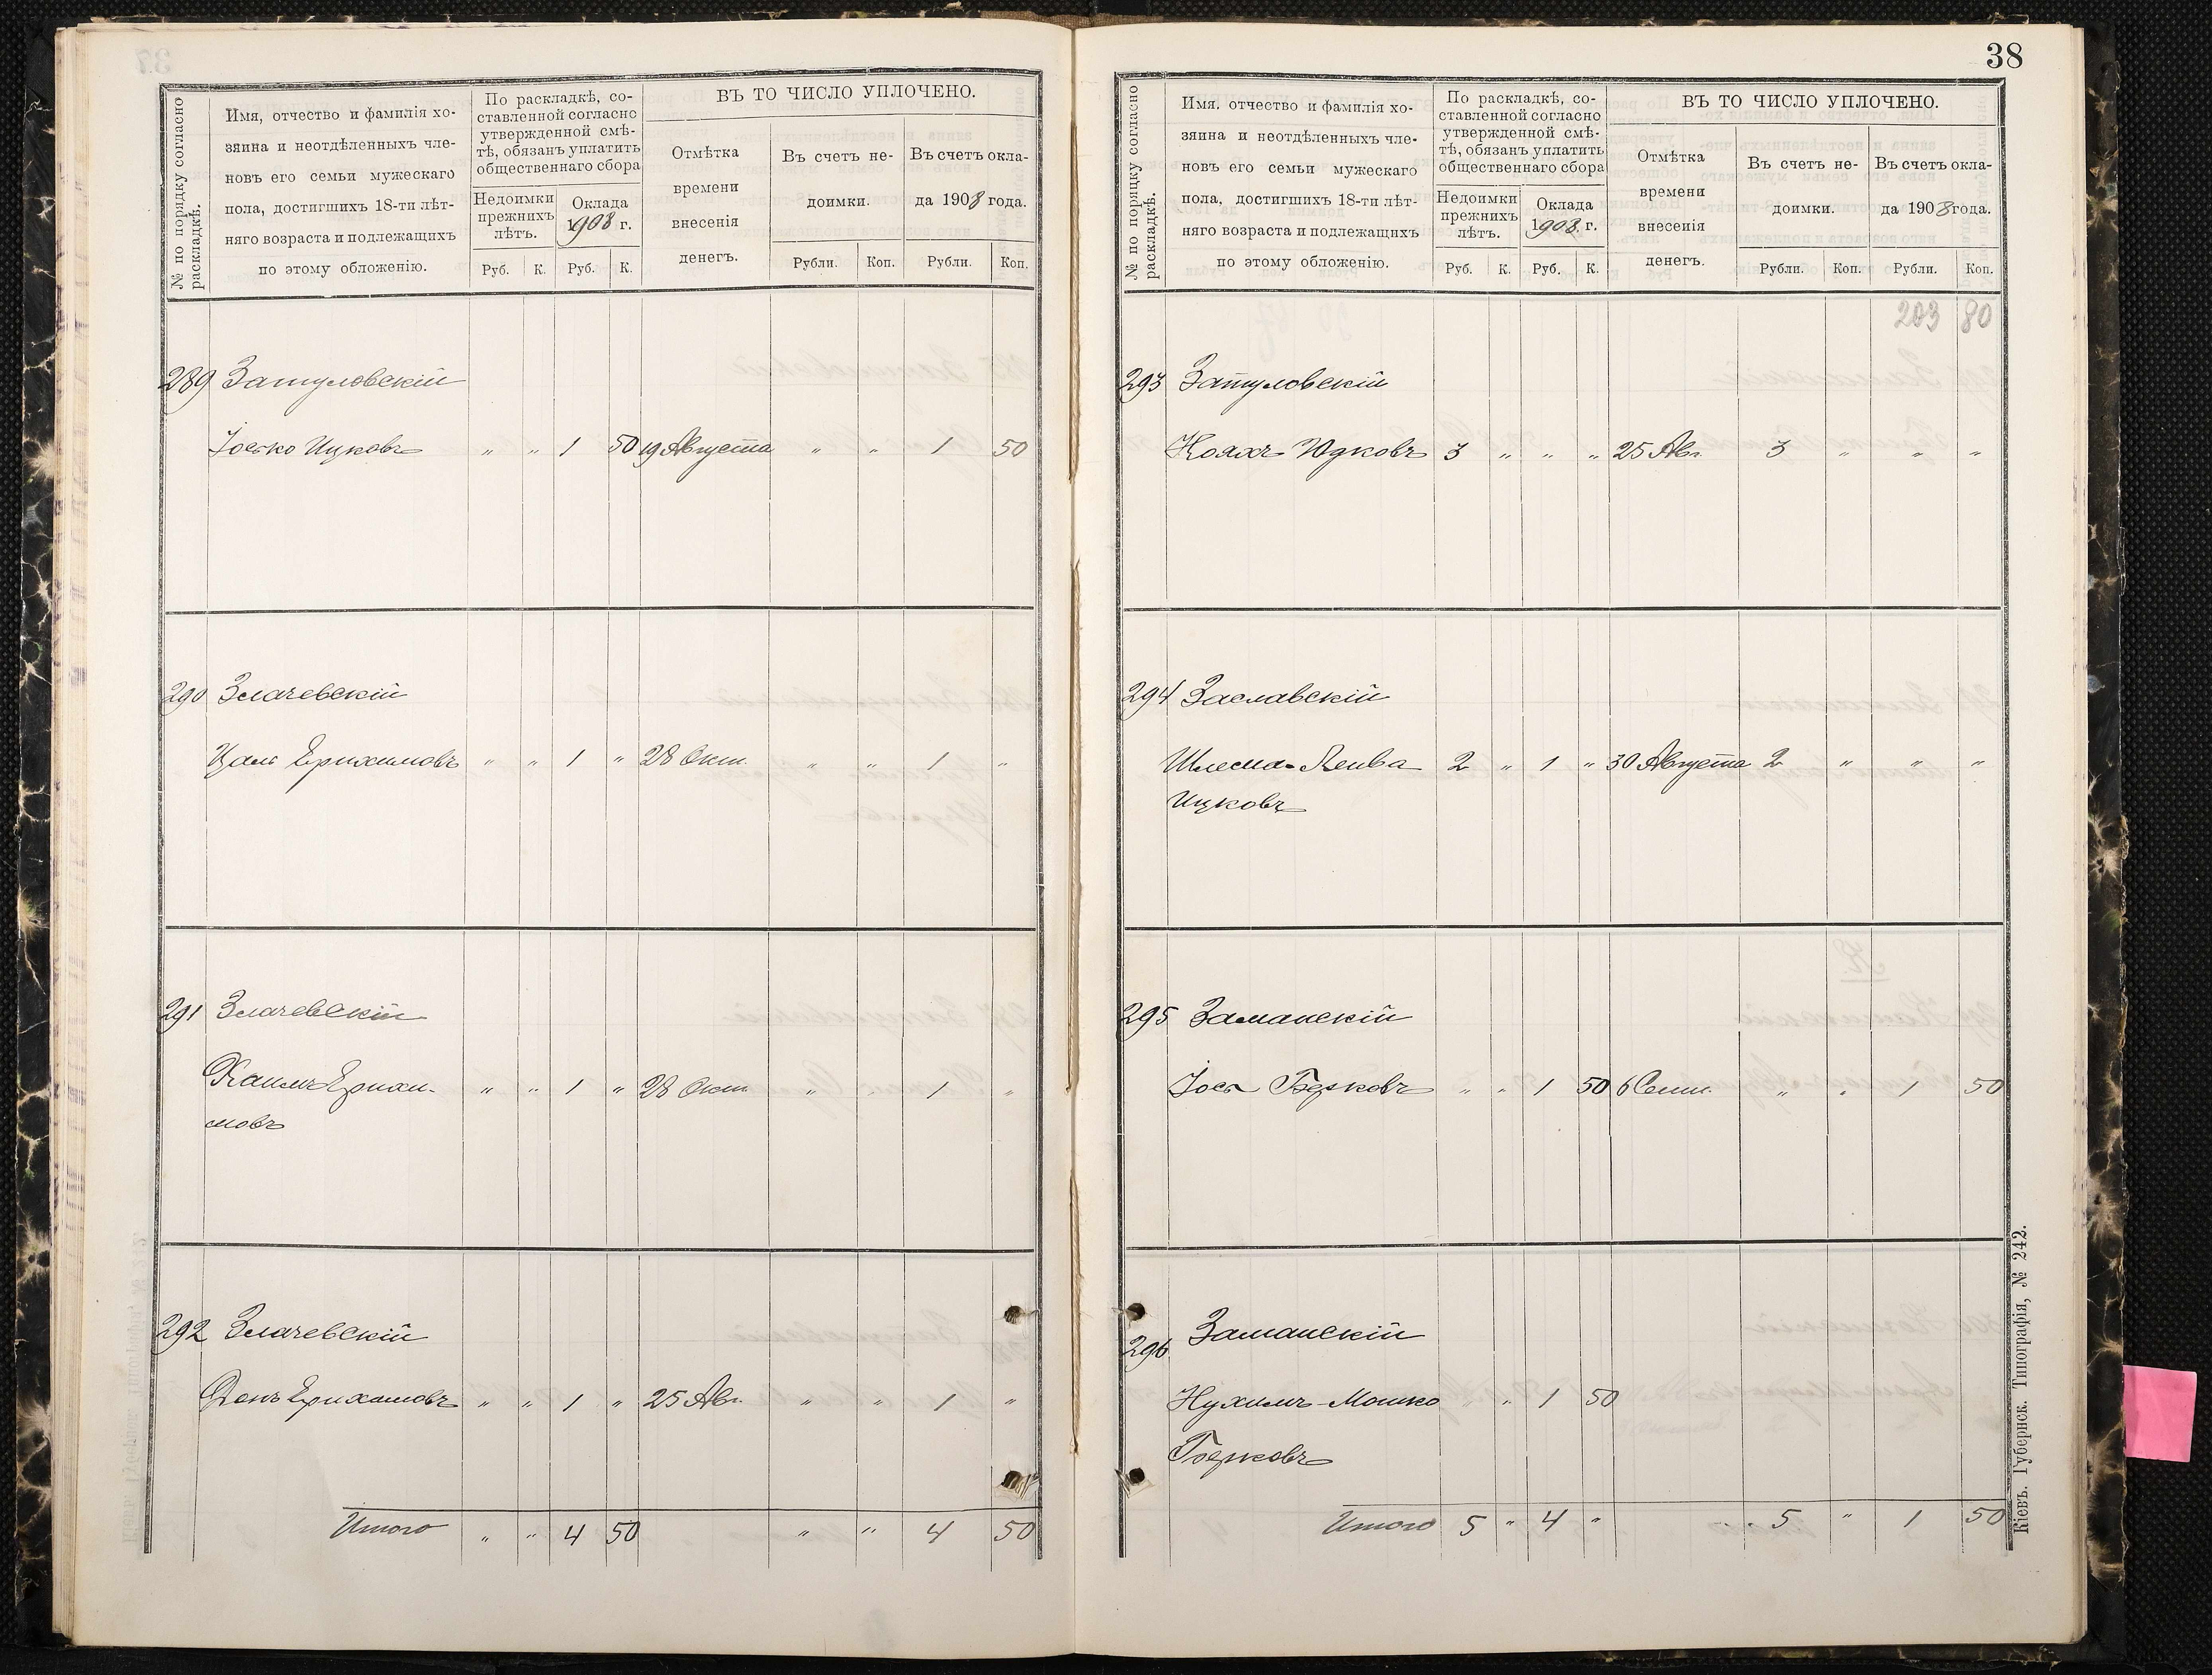 № по порядку согласно раскладкѣ.
Имя, отчество и фамилія хо-
зяина и неотдѣленныхъ чле-
новъ его семьи мужескаго
пола, достигшихъ 18-ти лѣт-
няго возраста и подлежащихъ
по этому обложенію.
По раскладкѣ, со-
ставленной согласно
утвержденной смѣ-
тѣ, обязанъ уплатить
общественнаго сбора
Недоимки прежнихъ лѣтъ.
Оклада 1908 г.
Руб. К. Руб. К.
ВЪ ТО ЧИСЛО УПЛОЧЕНО.
Отмѣтка времени внесенія денегъ.
Въ счетъ не-
доимки.
Въ счетъ окла-
да 1908 года.
Рубли. Коп. Рубли. Коп.
289 Затуловскій
Іосько Ицковъ " " 1 50 19 Августа " " 1 50
290 Злачевскій
Цаль Ерухимовъ " " 1 " 28 Окт. " " 1 "
291 Злачевскій
Хаимъ Ерухи-
мовъ " " 1 " 28 Окт. " " 1 "
292 Злачевскій
Ерухимовъ " " 1 " 25 Авг. " " 1 "
Итого " " 4 50 " " 4 50
38
№ по порядку согласно раскладкѣ.
Имя, отчество и фамилія хо-
зяина и неотдѣленныхъ чле-
новъ его семьи мужескаго
пола, достигшихъ 18-ти лѣт-
няго возраста и подлежащихъ
по этому обложенію.
По раскладкѣ, со-
ставленной согласно
утвержденной смѣ-
тѣ, обязанъ уплатить
общественнаго сбора
Недоимки прежнихъ лѣтъ.
Оклада 1908 г.
Руб. К. Руб. К.
ВЪ ТО ЧИСЛО УПЛОЧЕНО.
Отмѣтка времени внесенія денегъ.
Въ счетъ не-
доимки.
Въ счетъ окла-
да 1908 года.
Рубли. Коп. Рубли. Коп.
203 80
293 Затуловскій
Юдковъ 3 " " " 25 Авг. 3 " " "
294 Заславскій
Шлема-Лейва 2 " 1 " 30 Августа 2 " " "
Ицковъ
295 Заманскій
Іось Берковъ " " 1 50 6 Сент. " " 1 50
296 Заманскій
Нухимъ-Мошко " " 1 50
Берковъ
Итого 5 " 4 " 5 " 1 50
Кіевъ. Губернск. Типографія, № 242.